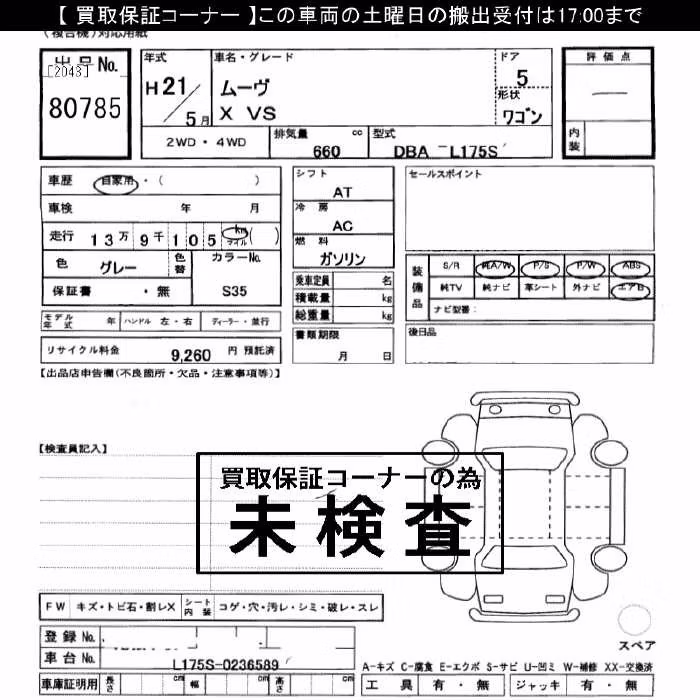 【 買取保証コーナー 】この車両の土曜日の搬出受付は17:00まで
(複合機)対応用紙
出品No.
[2043]
80785
年式
H21/5月
車名・グレード
ムーヴ
X VS
ドア
5
形状
ワゴン
評価点
内装
2WD・4WD
排気量
660 cc
型式
DBA L175S
車歴 自家用・( )
車検 年 月
走行 13万9千105 km マイル ( )
色 グレー
色替
カラーNo.
S35
保証書 ・無
シフト
AT
冷房
AC
燃料
ガソリン
乗車定員 名
積載量 kg
総重量 kg
書類期限
月 日
セールスポイント
装備品
S/R 純A/W P/S P/W ABS
純TV 純ナビ 革シート 外ナビ エアB
ナビ型番:
後日品
モデル年式 年 ハンドル 左・右 ディーラー・並行
リサイクル料金 9,260 円 預託済
【出品店申告欄(不良箇所・欠品・注意事項等)】
【検査員記入】
買取保証コーナーの為
未検査
FW キズ・トビ石・割レX シート内装 コゲ・穴・汚レ・シミ・破レ・スレ
登録No.
車台No. L175S-0236589
車庫証明用 長さ cm 幅 cm 高さ cm
スペア
A-キズ C-腐食 E-エクボ S-サビ U-凹ミ W-補修 XX-交換済
工具 有・無 ジャッキ 有・無